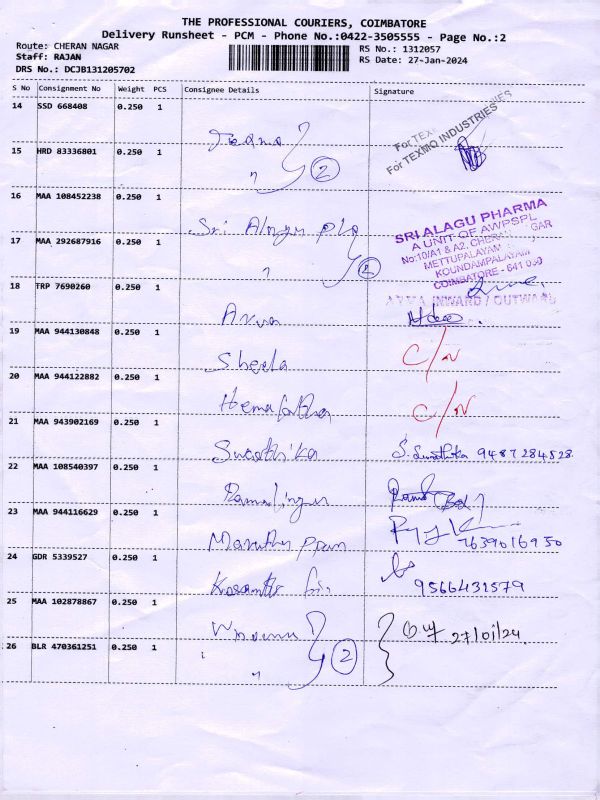 THE PROFESSIONAL COURIERS, COIMBATORE
Delivery Runsheet - PCM - Phone No.:0422-3505555 - Page No.:2
Route: CHERAN NAGAR
RS No.: 1312057
Staff: RAJAN
RS Date: 27-Jan-2024
DRS No.: DCJB131205702
S No Consignment No Weight PCS Consignee Details Signature
14 SSD 668408 0.250 1
For TEXMO INDUSTRIES
15 HRD 83336801 0.250 1
" 2
16 MAA 108452238 0.250 1
Sri
SRI ALAGU PHARMA
A UNIT OF AWPSPL
No:10/A1 & A2, CHERAN NAGAR
METTUPALAYAM
KOUNDAMPALAYAM
COIMBATORE - 641 030
17 MAA 292687916 0.250 1
" 2
18 TRP 7690260 0.250 1
INWARD / OUTWARD
19 MAA 944130848 0.250 1
Sheela C/N
20 MAA 944122882 0.250 1
C/N
21 MAA 943902169 0.250 1
Swathika 9487284528
22 MAA 108540397 0.250 1
23 MAA 944116629 0.250 1
7639016950
24 GDR 5339527 0.250 1
9566431579
25 MAA 102878867 0.250 1
27/01/24.
26 BLR 470361251 0.250 1
" 2